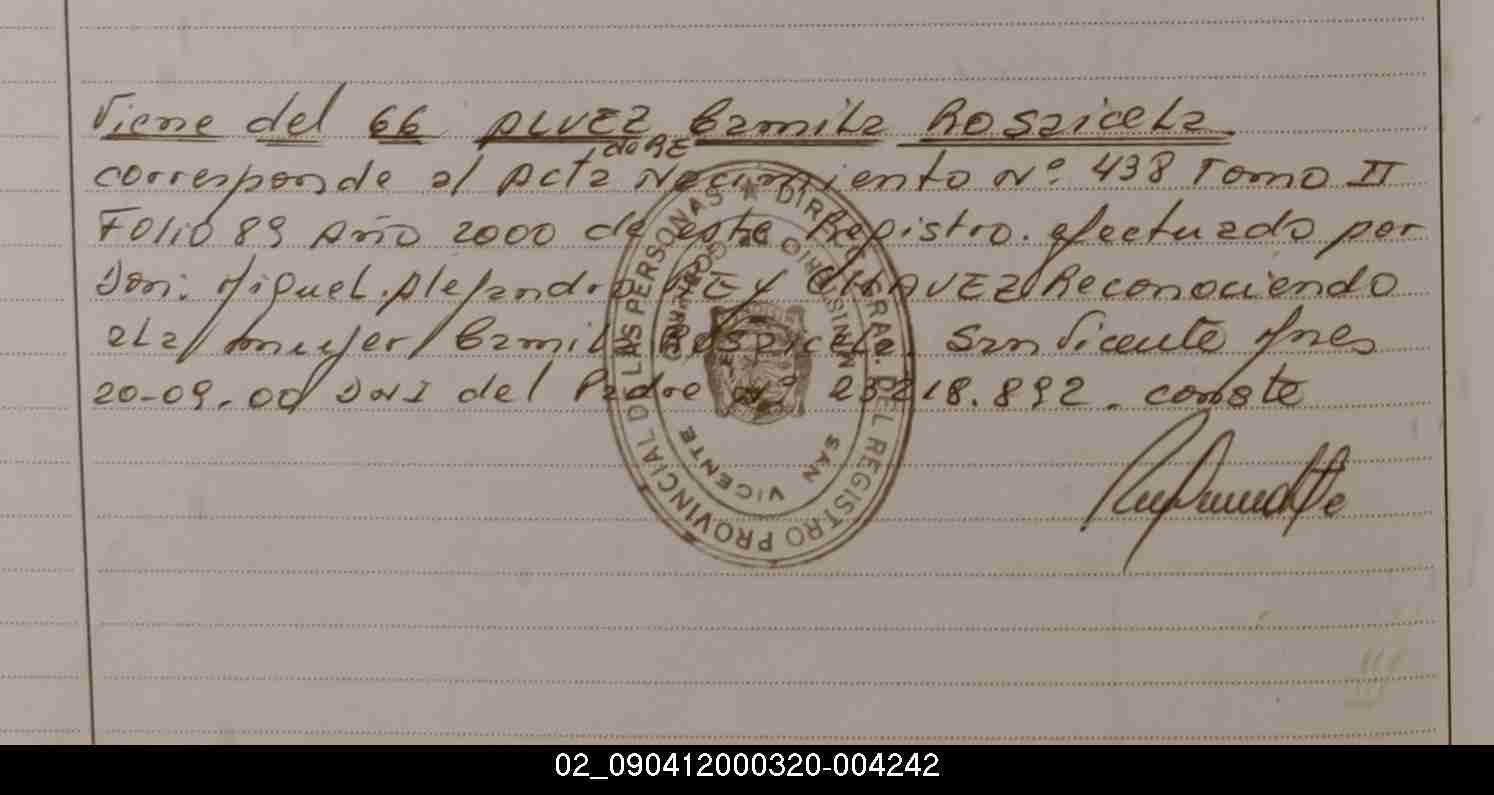 Viene del 66 ALVEZ Camila Rosaicela
corresponde al Acta de RE Nacimiento Nº 438 Tomo II
FOLIO 89 Año 2000 de este Registro. efectuado por
Don: Miguel Alejandro REY CHAVEZ Reconociendo
a la mujer Camila Rosaicela. San Vicente
20-09-00 DNI del Padre Nº 23.218.892. conste
DIREC. GRAL. DEL REGISTRO PROVINCIAL DE LAS PERSONAS
MINISTERIO DE GOBIERNO
SAN VICENTE
02_090412000320-004242